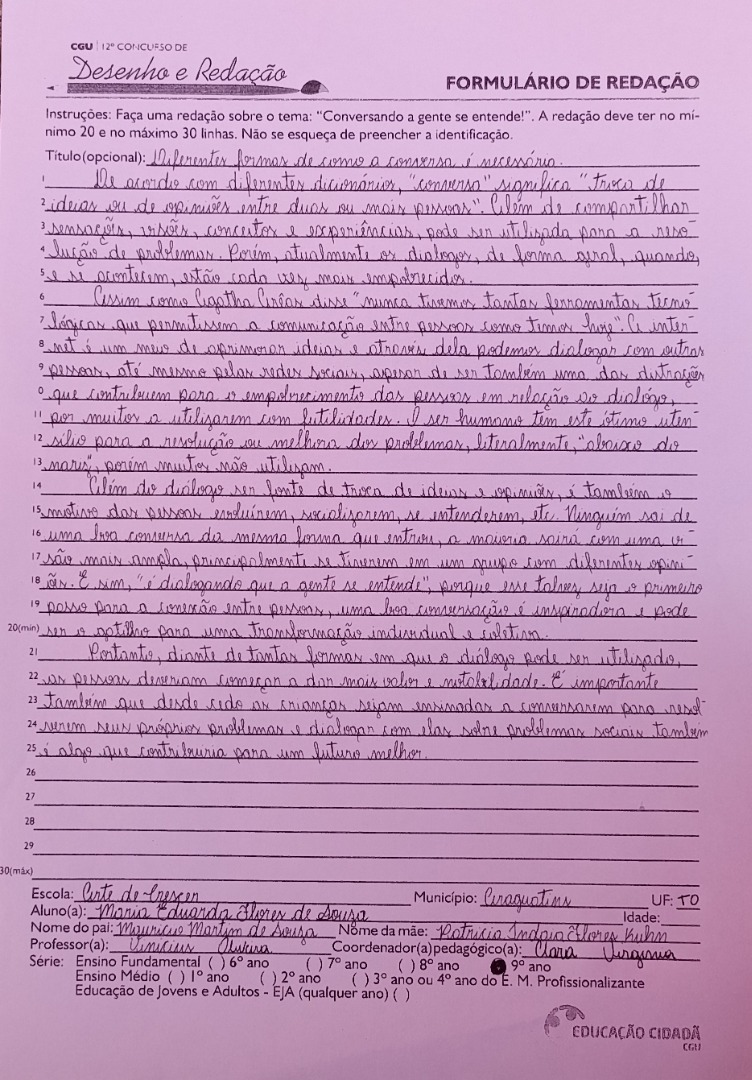 CGU | 12º CONCURSO DE
Desenho e Redação
FORMULÁRIO DE REDAÇÃO
Instruções: Faça uma redação sobre o tema: "Conversando a gente se entende!". A redação deve ter no mí-
nimo 20 e no máximo 30 linhas. Não se esqueça de preencher a identificação.
Título(opcional): Diferentes formas de como a conversa é necessária.
1 De acordo com diferentes dicionários, "conversa" significa "troca de
2 ideias ou de opiniões entre duas ou mais pessoas". Além de compartilhar
3 sensações, visões, conceitos e experiências, pode ser utilizada para a reso-
4 lução de problemas. Porém, atualmente os dialogos, de forma geral, quando,
5 e se acontecem, estão cada vez mais empobrecidos.
6 Assim como Agatha Arêas disse "nunca tivemos tantas ferramentas tecno-
7 lógicas que permitissem a comunicação entre pessoas como temos hoje". A inter-
8 net é um meio de aprimorar ideias e através dela podemos dialogar com outras
9 pessoas, até mesmo pelas redes sociais, apesar de ser também uma das distrações
0 que contribuem para o empobrecimento das pessoas em relação ao dialógo,
11 por muitos a utilizarem com futilidades. O ser humano têm este ótimo uten-
12 sílio para a resolução ou melhora dos problemas, literalmente, "abaixo do
13 nariz", porém muitos não utilizam.
14 Além do diálogo ser fonte de troca de ideias e opiniões, é também o
15 motivo das pessoas evoluírem, socializarem, se entenderem, etc. Ninguém sai de
16 uma boa conversa da mesma forma que entrou, a maioria sairá com uma vi-
17 são mais ampla, principalmente se tiverem em um grupo com diferentes opini-
18 ões. E sim, "é dialogando que a gente se entende", porque esse talvez seja o primeiro
19 passo para a conexão entre pessoas, uma boa conversação é inspiradora e pode
20(min) ser o gatilho para uma transformação individual e coletiva.
21 Portanto, diante de tantas formas em que o diálogo pode ser utilizado,
22 as pessoas deveriam começar a dar mais valor e notabilidade. É importante
23 também que desde cedo as crianças sejam ensinadas a conversarem para resol-
24 verem seus próprios problemas e dialogar com elas sobre problemas sociais também
25 é algo que contribuiria para um futuro melhor.
26
27
28
29
30(máx)
Escola: Arte de Crescer Município: Araguatins UF: TO
Aluno(a): Maria Eduarda Flores de Souza Idade:
Nome do pai: Mauricio Martim de Souza Nome da mãe: Patricia Indaia Flores Kuhn
Professor(a): Vinicius Coordenador(a)pedagógico(a): Clara Virginia
Série: Ensino Fundamental ( ) 6º ano ( ) 7º ano ( ) 8º ano 9º ano
Ensino Médio ( ) 1º ano ( ) 2º ano ( ) 3º ano ou 4º ano do E. M. Profissionalizante
Educação de Jovens e Adultos - EJA (qualquer ano) ( )
EDUCAÇÃO CIDADÃ
CGU